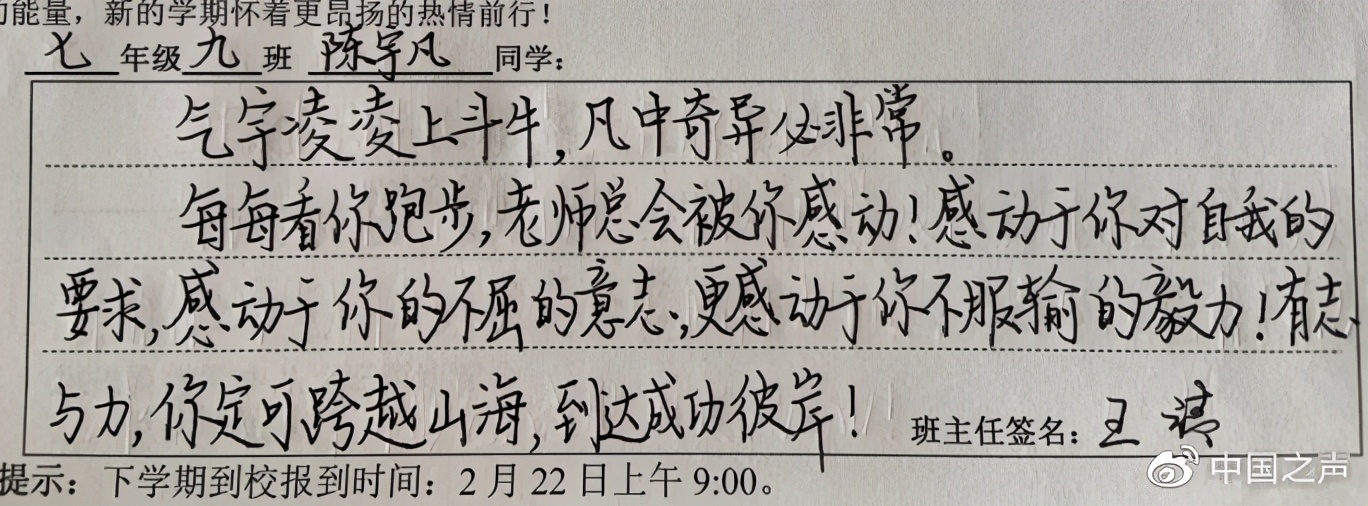 能量，新的学期怀着更昂扬的热情前行！
七年级九班 陈宇凡 同学：
气宇凌凌上斗牛，凡中奇异必非常。
每每看你跑步，老师总会被你感动！感动于你对自我的
要求，感动于你的不屈的意志，更感动于你不服输的毅力！有志
与力，你定可跨越山海，到达成功彼岸！ 班主任签名：王
提示：下学期到校报到时间：2月22日上午9:00。
中国之声